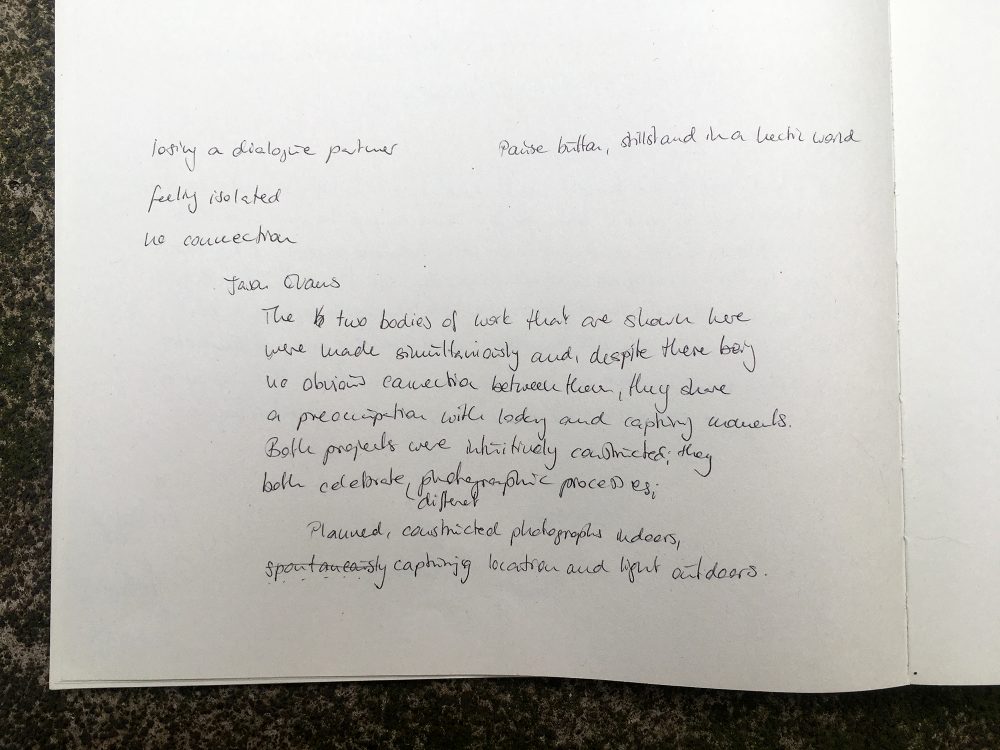 losing a dialogue partner
Pause button, stillstand in a hectic world
feeling isolated
no connection
Jason Evans
The two bodies of work that are shown here
were made simultaniously and, despite there being
no obvious connection between them, they share
a preoccupation with looking and capturing moments.
Both projects were intuitively constructed; they
both celebrate photographic processes;
different
Planned, constructed photographs indoors,
spontaneously capturing location and light outdoors.